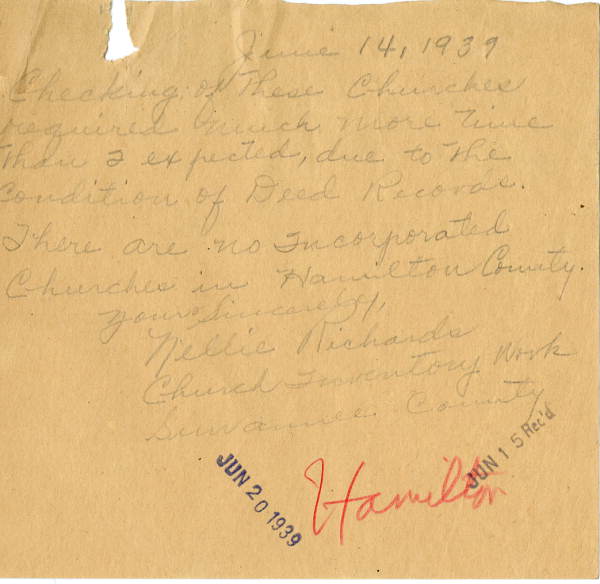 June 14, 1939
Checking of These Churches
required much more time
than I expected, due to the
Condition of Deed Records.
There are no Incorporated
Churches in Hamilton County.
Yours Sincerely,
Nellie Richards
Church Inventory Work
Suwannee County
JUN 15 Rec'd
JUN 20 1939
Hamilton